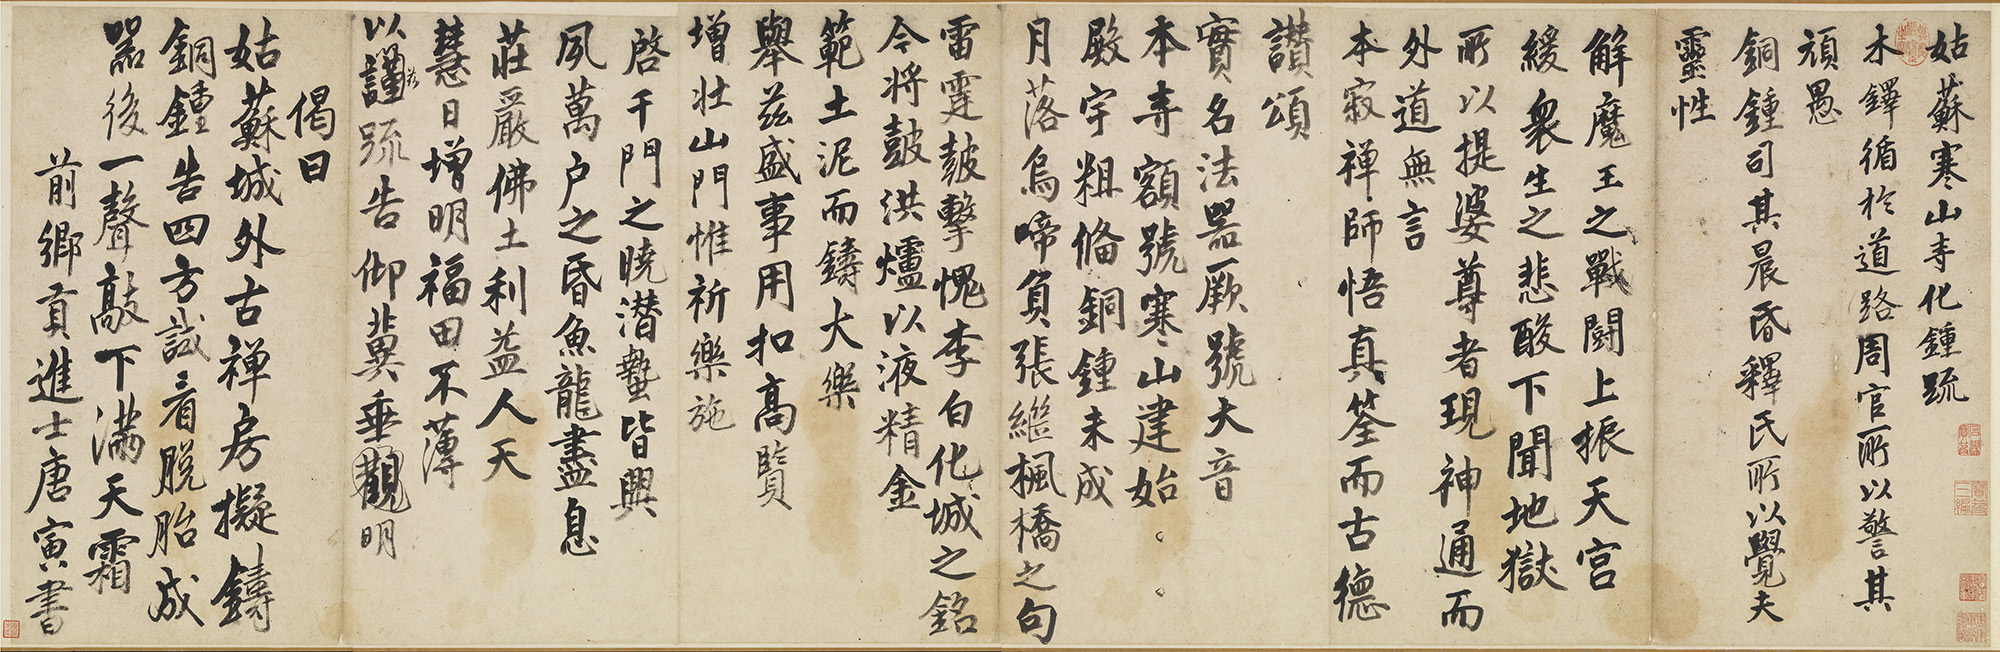 姑蘇寒山寺化鍾疏
木鐸循於道路周官所以警其
頑愚
銅鍾司其晨昏釋氏所以覺夫
靈性
解魔王之戰鬪上振天宮
緩衆生之悲酸下聞地獄
所以提婆尊者現神通而
外道無言
本寂禪師悟真筌而古德
讃頌
實名法器厥號大音
本寺額號寒山建始。。
殿宇粗俻銅鍾未成
月落烏啼負張繼楓橋之句
雷霆皷擊愧李白化城之銘
今將皷洪爐以液精金
範土泥而鑄大樂
舉兹盛事用扣高賢
增壯山門惟祈樂施
啓千門之曉潜蟄皆興
夙萬户之昏魚龍盡息
莊嚴佛土利益人天
慧日增明福田不薄
以兹謹疏告仰兾垂觀明
偈曰
姑蘇城外古禪房擬鑄
銅鍾告四方試看脫胎成
器後一聲敲下滿天霜
前鄉貢進士唐寅書